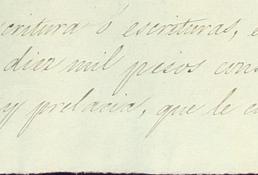 scritura ó escrituras, e
diez mil pesos cons
y prelacia, que le c